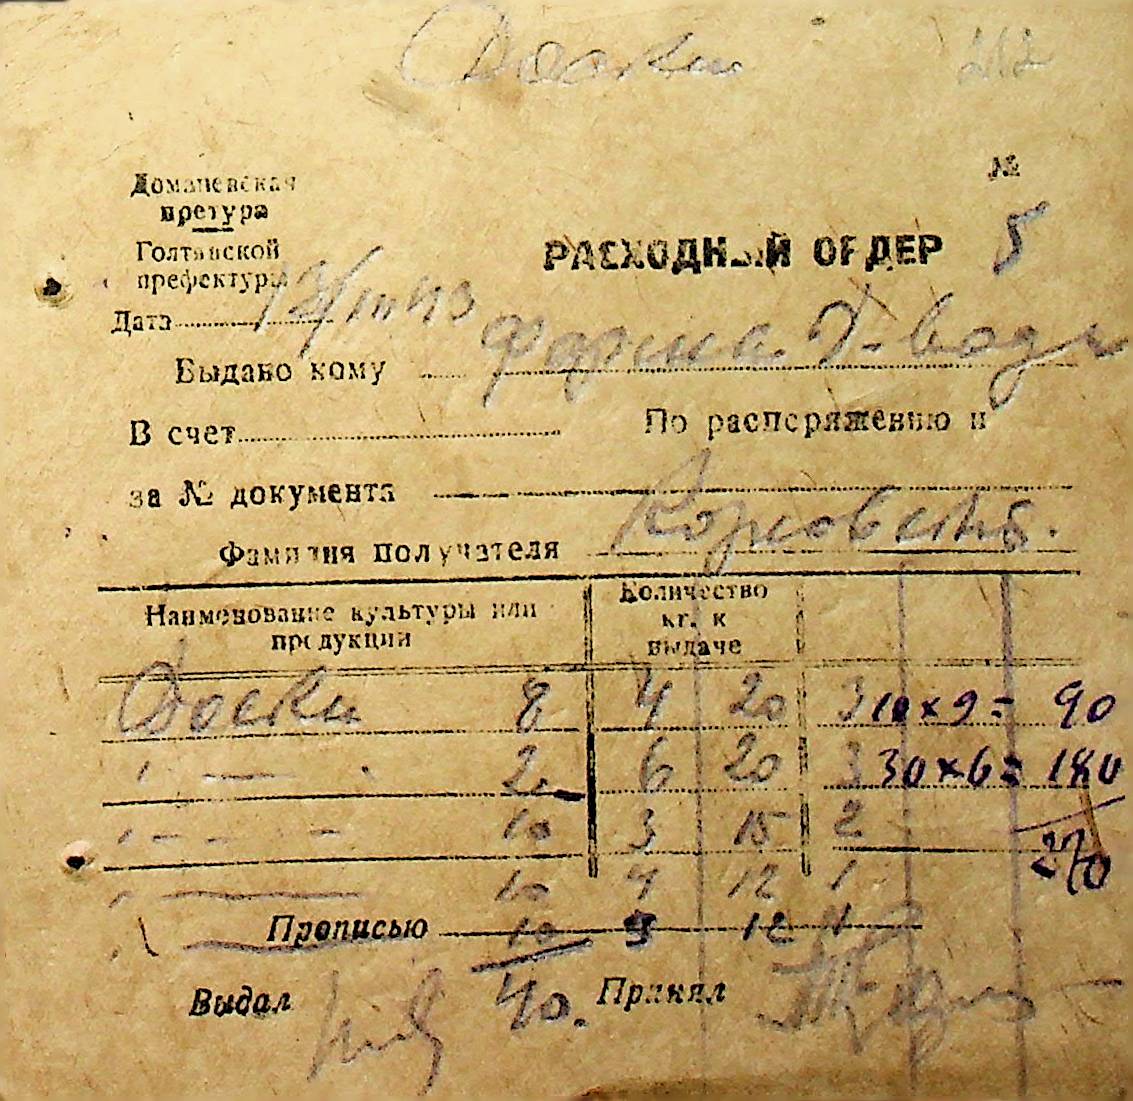 Доски 212
№
Доманевская
претура
Голтянской
префектуры
РАСХОДНЫЙ ОРДЕР 5
Дата 13/III 43
Выдано кому ферма
В счет По распоряжению и
за № документа
Фамилия получателя
Наименование культуры или продукции
Количество кг. к выдаче
Доски 8 4 20 3 10х9= 90
" — " 2 6 20 3 30х6= 180
" — — 10 3 15 2 270
" — 10 4 12 1
Прописью 10 3 12 1
40.
Выдал Принял